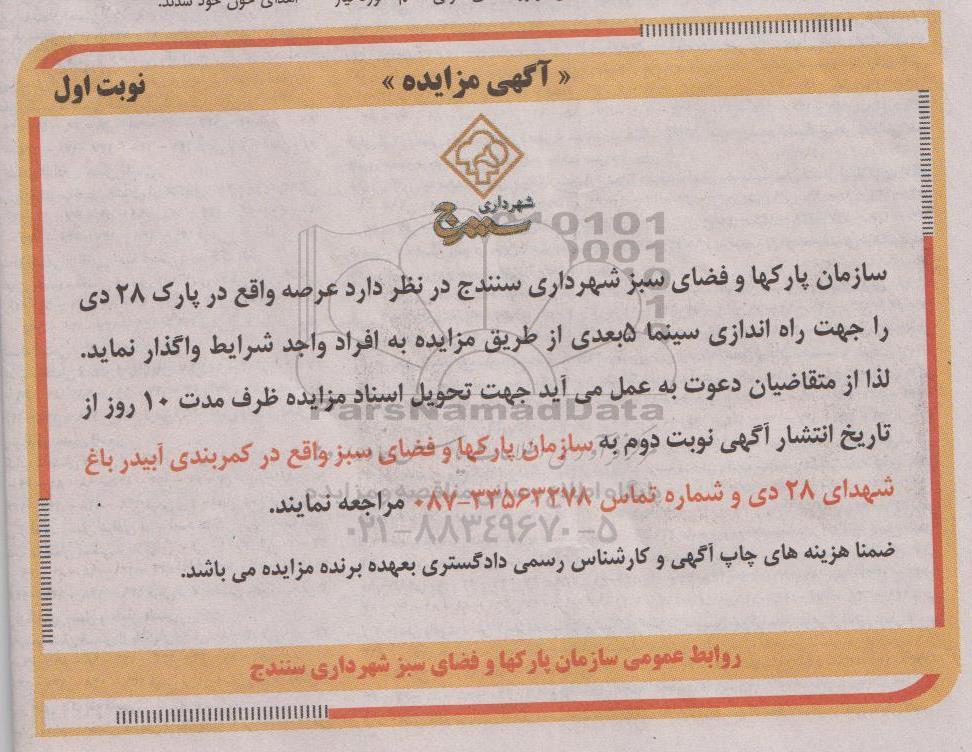 اهدای خون خود شدند.
« آگهی مزایده »
نوبت اول
شهرداری
سنندج
سازمان پارکها و فضای سبز شهرداری سنندج در نظر دارد عرصه واقع در پارک ۲۸ دی
را جهت راه اندازی سینما ۵بعدی از طریق مزایده به افراد واجد شرایط واگذار نماید.
لذا از متقاضیان دعوت به عمل می آید جهت تحویل اسناد مزایده ظرف مدت ۱۰ روز از
تاریخ انتشار آگهی نوبت دوم به سازمان پارکها و فضای سبز واقع در کمربندی آبیدر باغ
شهدای ۲۸ دی و شماره تماس ۳۳۵۶۳۲۷۸-۰۸۷ مراجعه نمایند.
ضمنا هزینه های چاپ آگهی و کارشناس رسمی دادگستری بعهده برنده مزایده می باشد.
روابط عمومی سازمان پارکها و فضای سبز شهرداری سنندج
ParsNamadData
۰۲۱-۸۸۳۴۹۶۷۰-۵